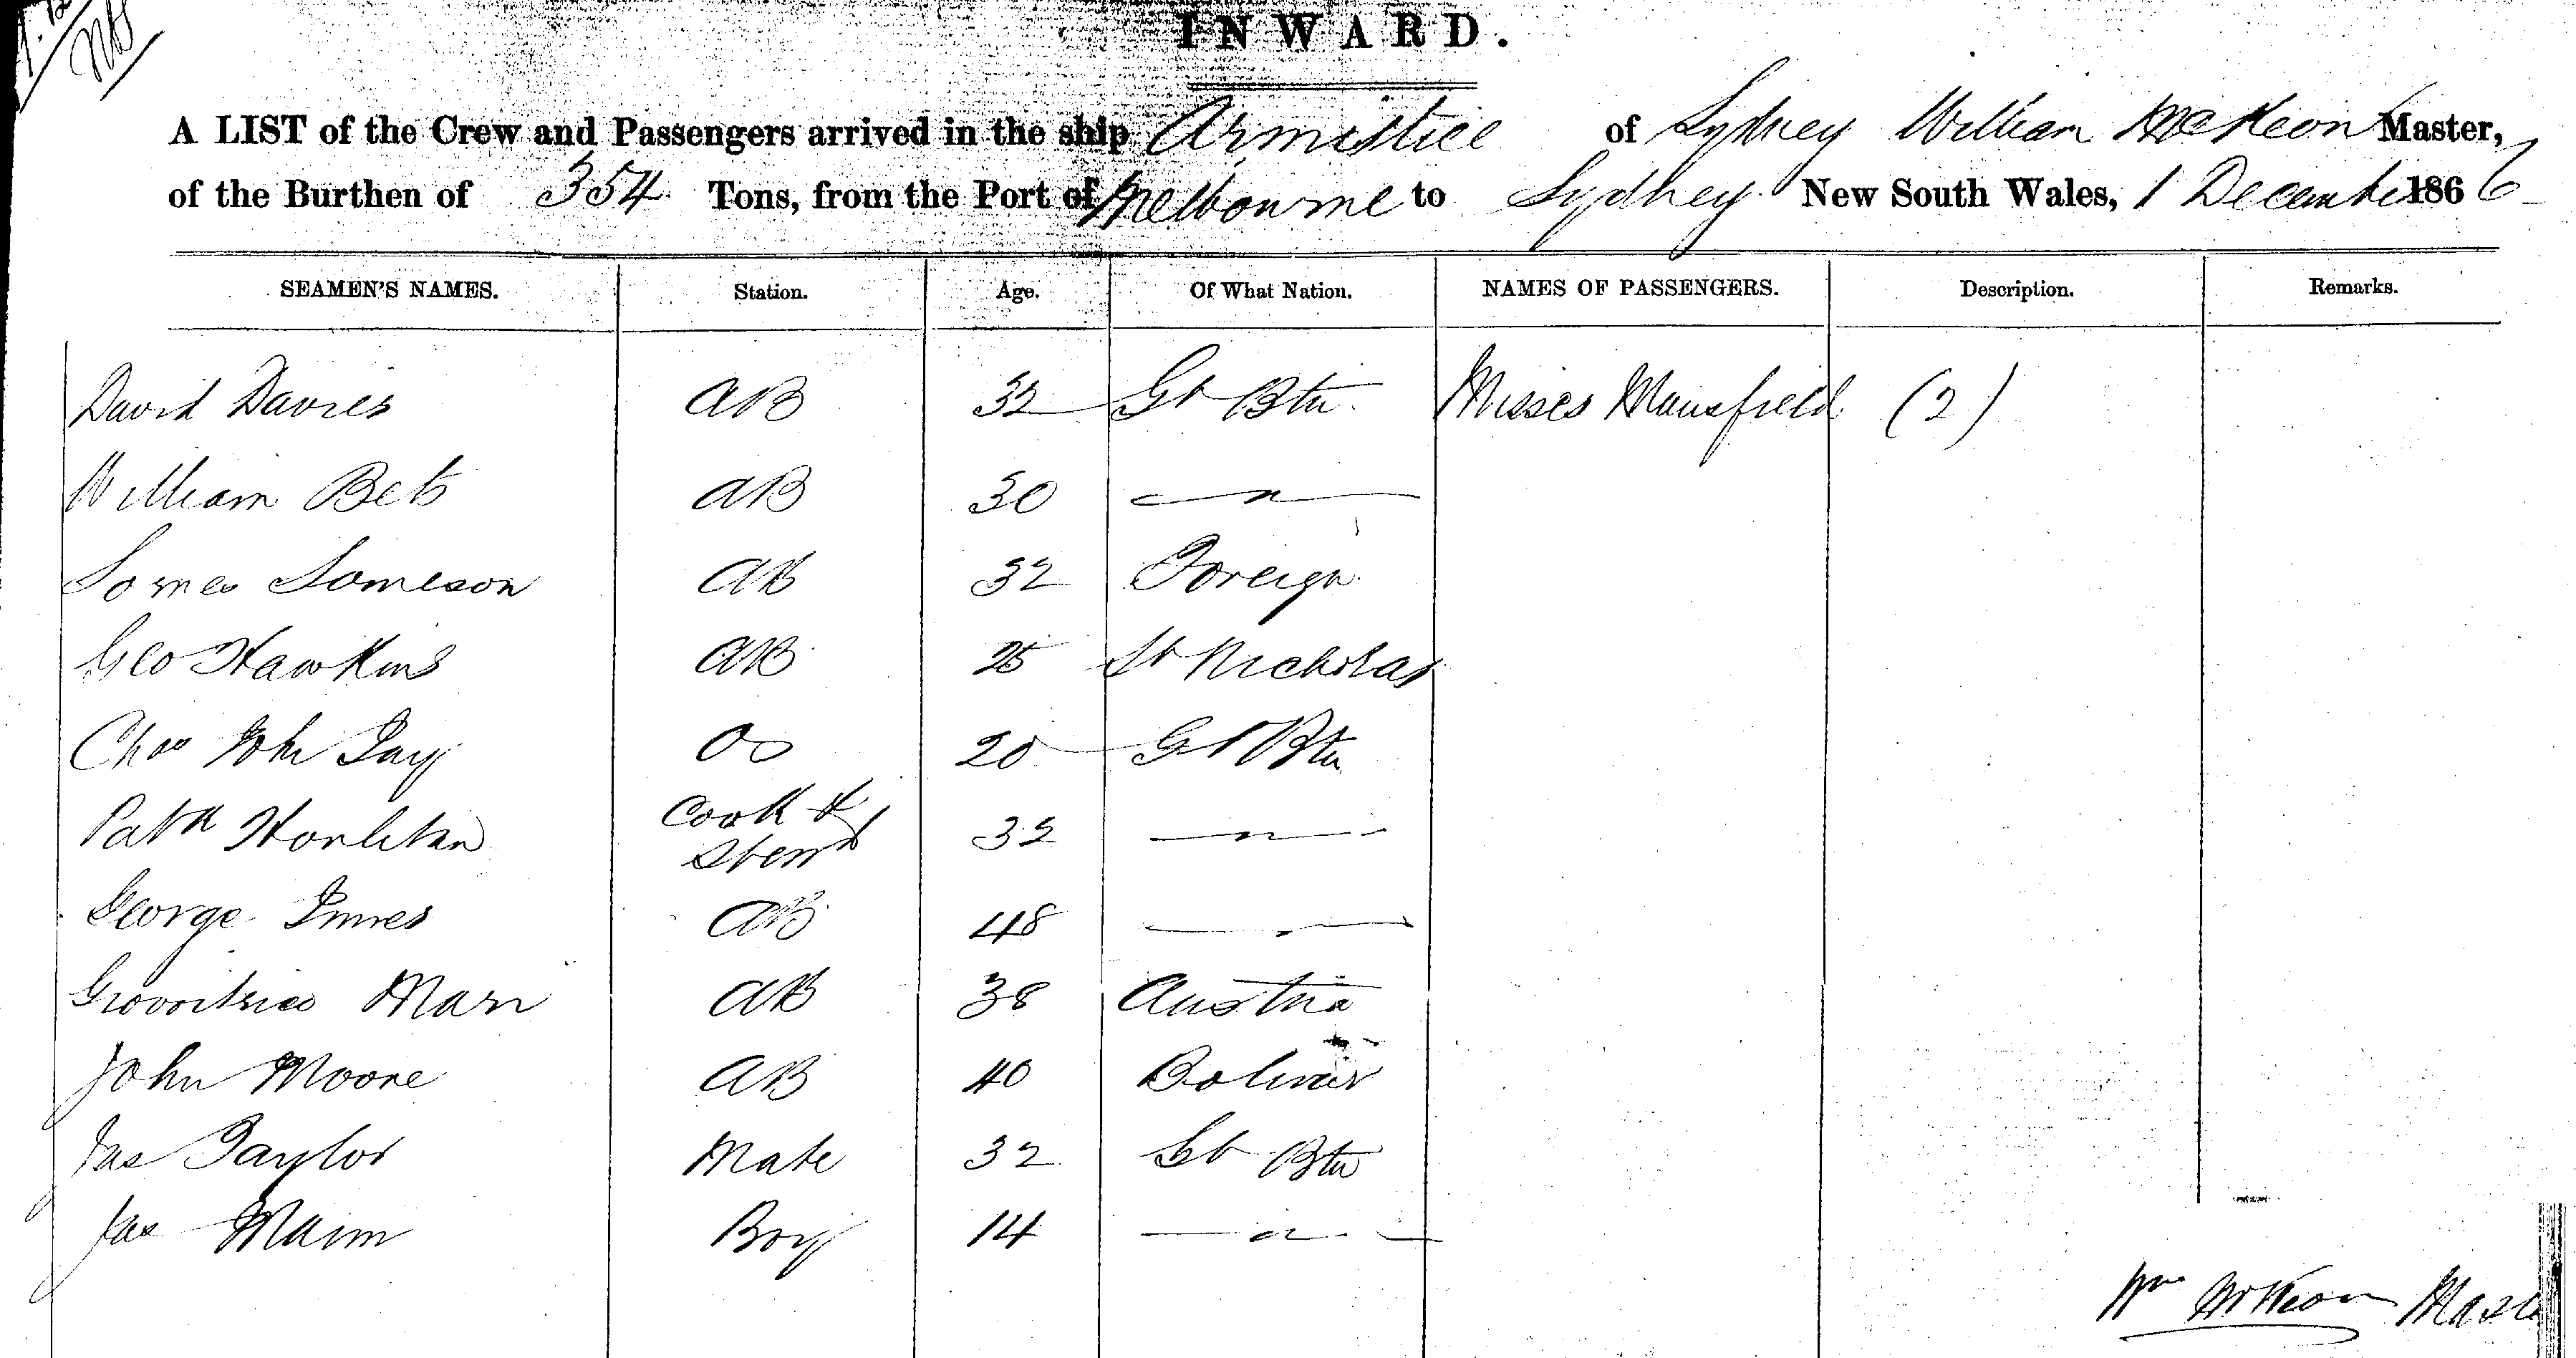 INWARD.
A LIST of the Crew and Passengers arrived in the ship Armistice of Sydney William McKeon Master,
of the Burthen of 354 Tons, from the Port of Melbourne to Sydney New South Wales, 1 December 1866
SEAMEN'S NAMES. Station. Age. Of What Nation. NAMES OF PASSENGERS. Description. Remarks.
David Davies AB 32 Gt Btn Misses Mansfield (2)
William Bets AB 30 — " —
Somes Someson AB 32 Foreign
Geo Hawkins AB 25 St Nicholas
Chas John Day OS 20 Gt Btn
Patk Cook & Stewd 32 — " —
George Innes AB 48 — " —
Marr AB 38 Austria
John Moore AB 40 Bolivar
Jas Taylor Mate 32 Gt Btn
Jas Maim Boy 14 — " —
Wm McKeon Master